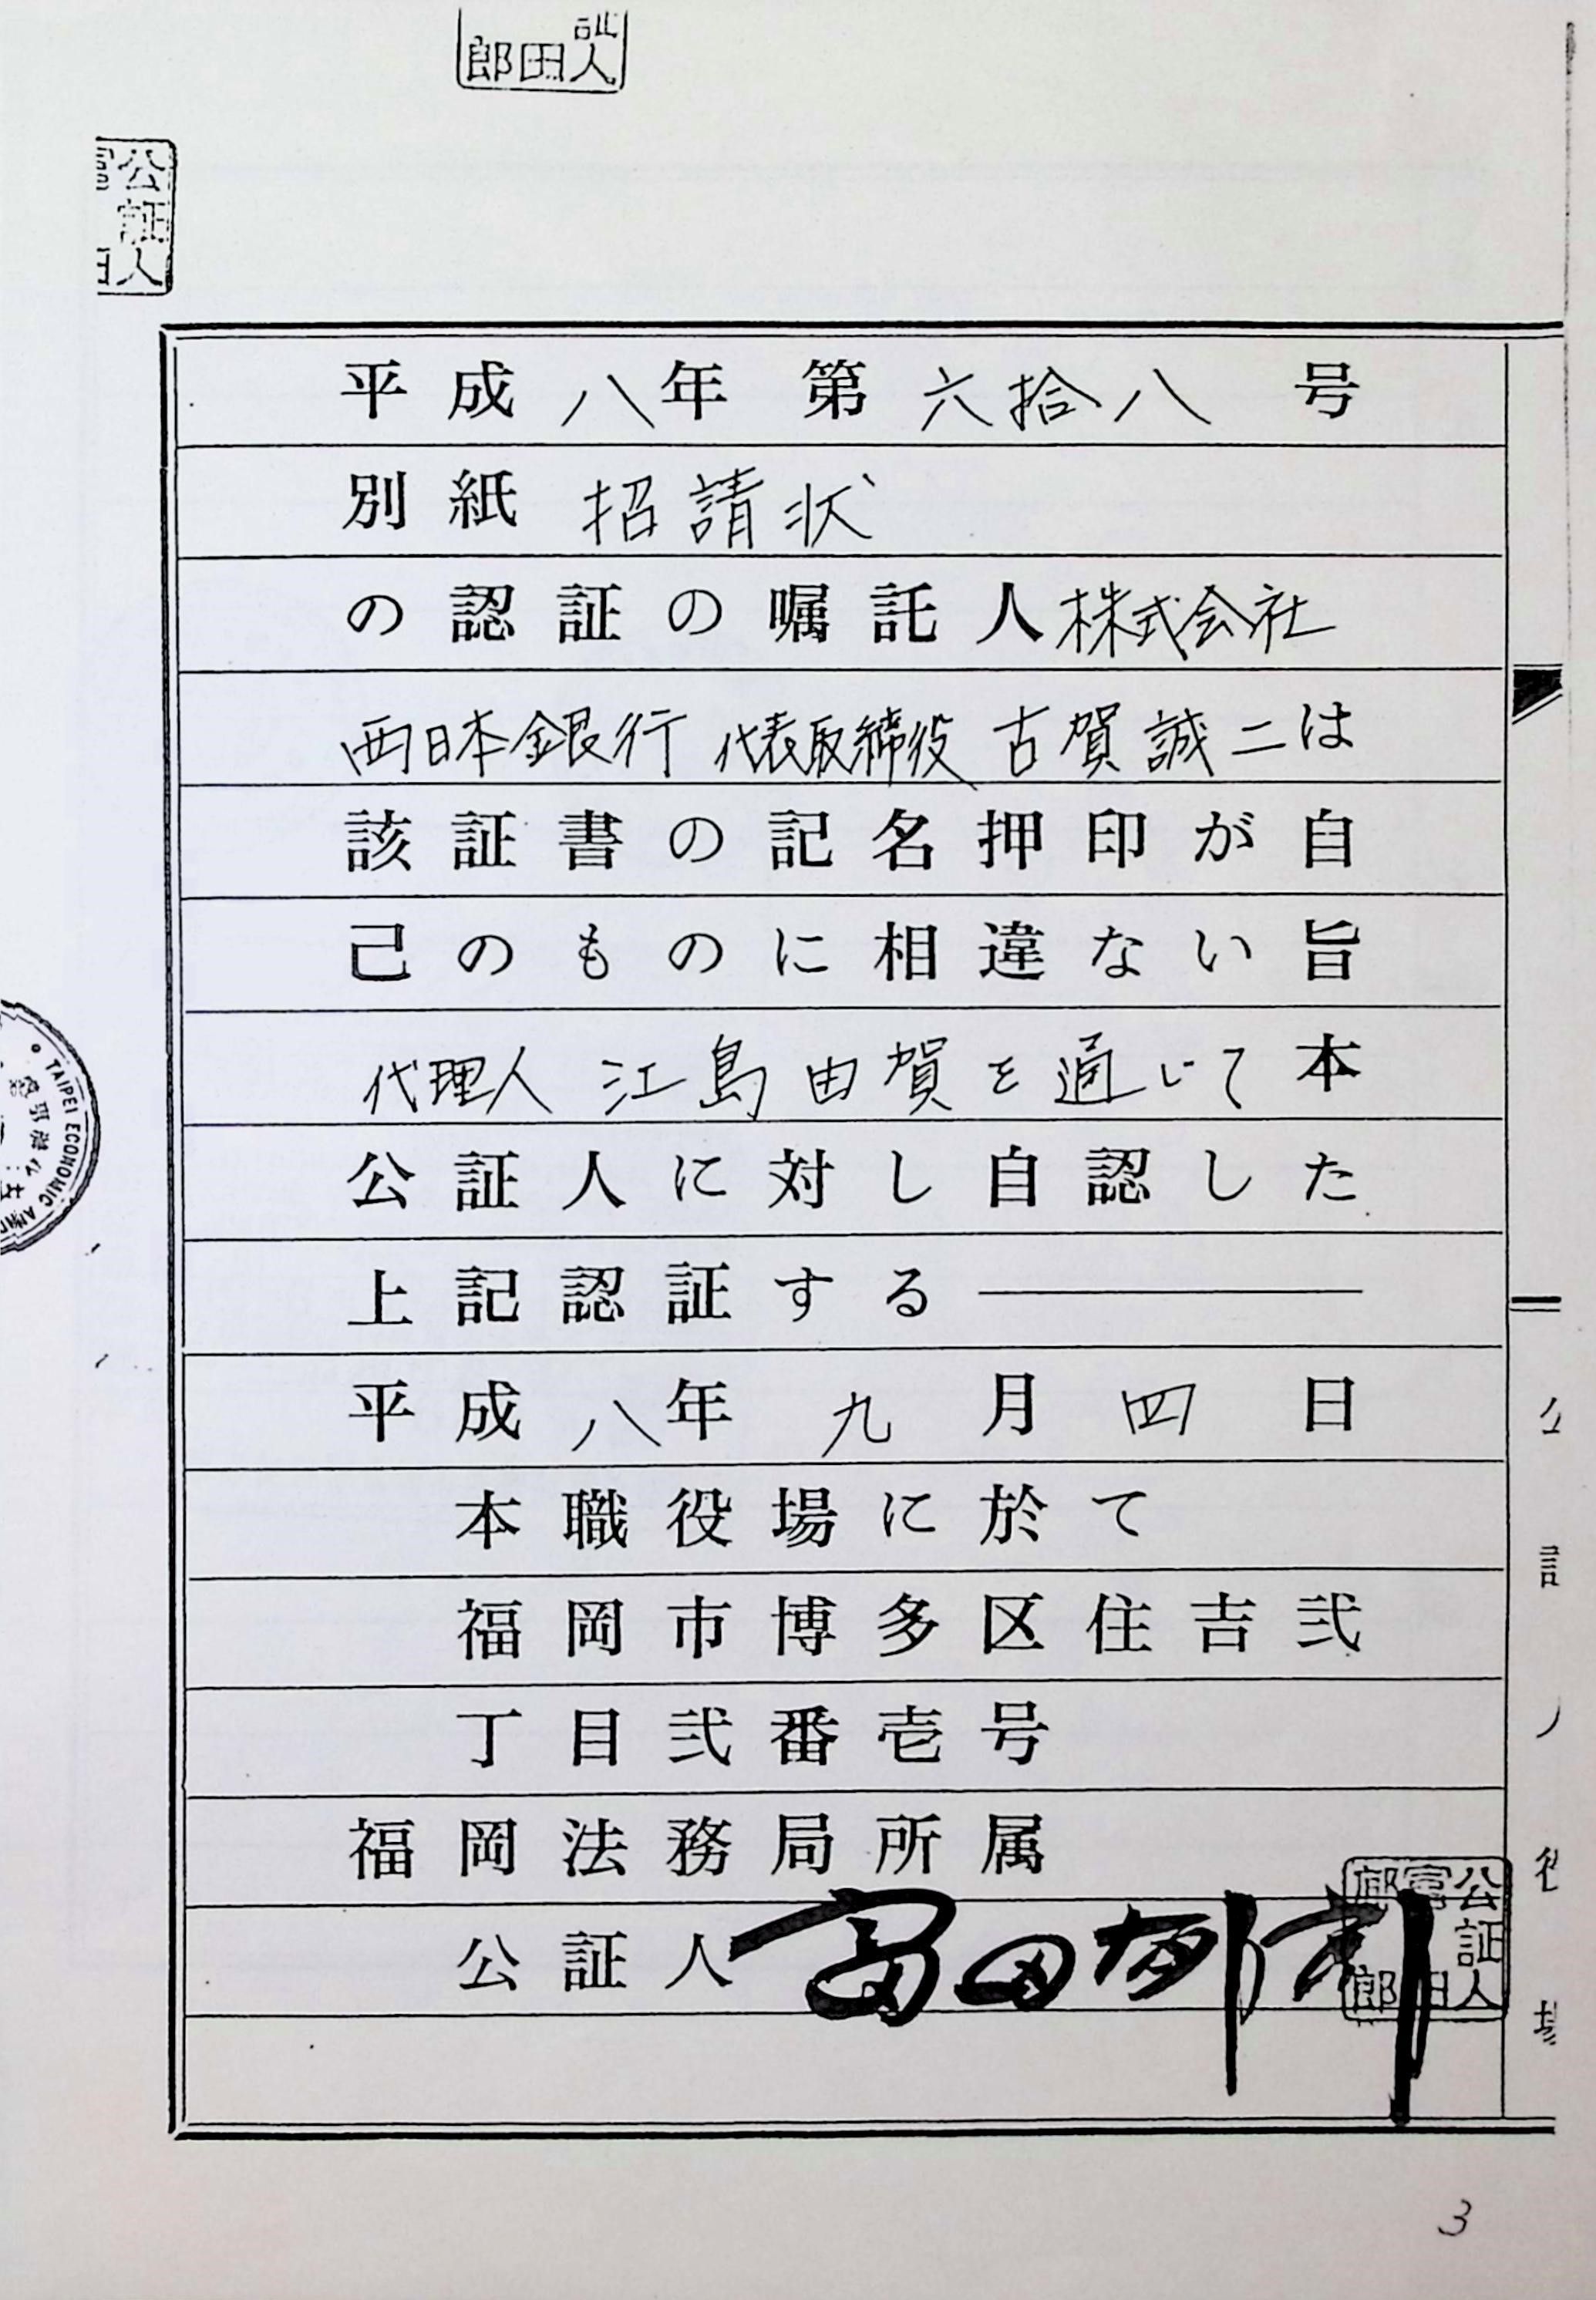 証人
田郎
公証人
平成八年第六拾八号
別紙招請状
の認証の嘱託人株式会社
西日本銀行 代表取締役 古賀誠二は
該証書の記名押印が自
己のものに相違ない旨
代理人 江島由賀を通じて本
公証人に対し自認した
上記認証する
平成八年九月四日
本職役場に於て
福岡市博多区住吉弐
丁目弐番壱号
福岡法務局所属
公証人 富田郁郎
公証人
富田
郎
TAIPEI ECONOMIC
3